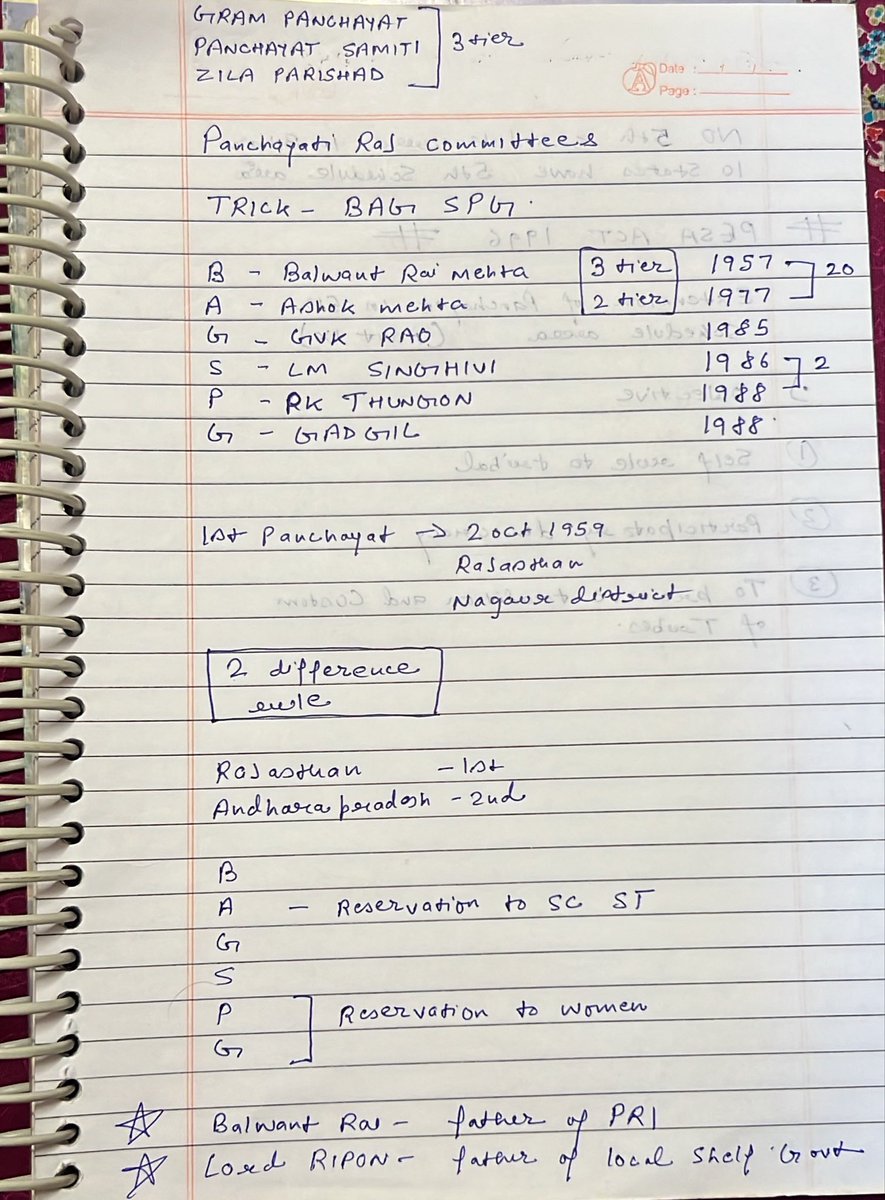 GRAM PANCHAYAT
PANCHAYAT SAMITI 3 tier
ZILA PARISHAD
Date :
Page :
Panchayati Raj committees
TRICK - BAG SPG.
B - Balwant Rai Mehta 3 tier 1957
20
A - Ashok mehta 2 tier 1977
G - GVK RAO 1985
S - LM SINGHIVI 1986
2
P - RK THUNGON 1988
G - GADGIL 1988
1st Panchayat → 2 oct 1959
Rajasthan
Nagaur district
2 difference
rule
Rajasthan - 1st
Andhara pradesh - 2nd
B
A - Reservation to SC ST
G
S
P Reservation to women
G
☆ Balwant Rai - father of PRI
☆ Lord RIPON - father of local Shelf Govt